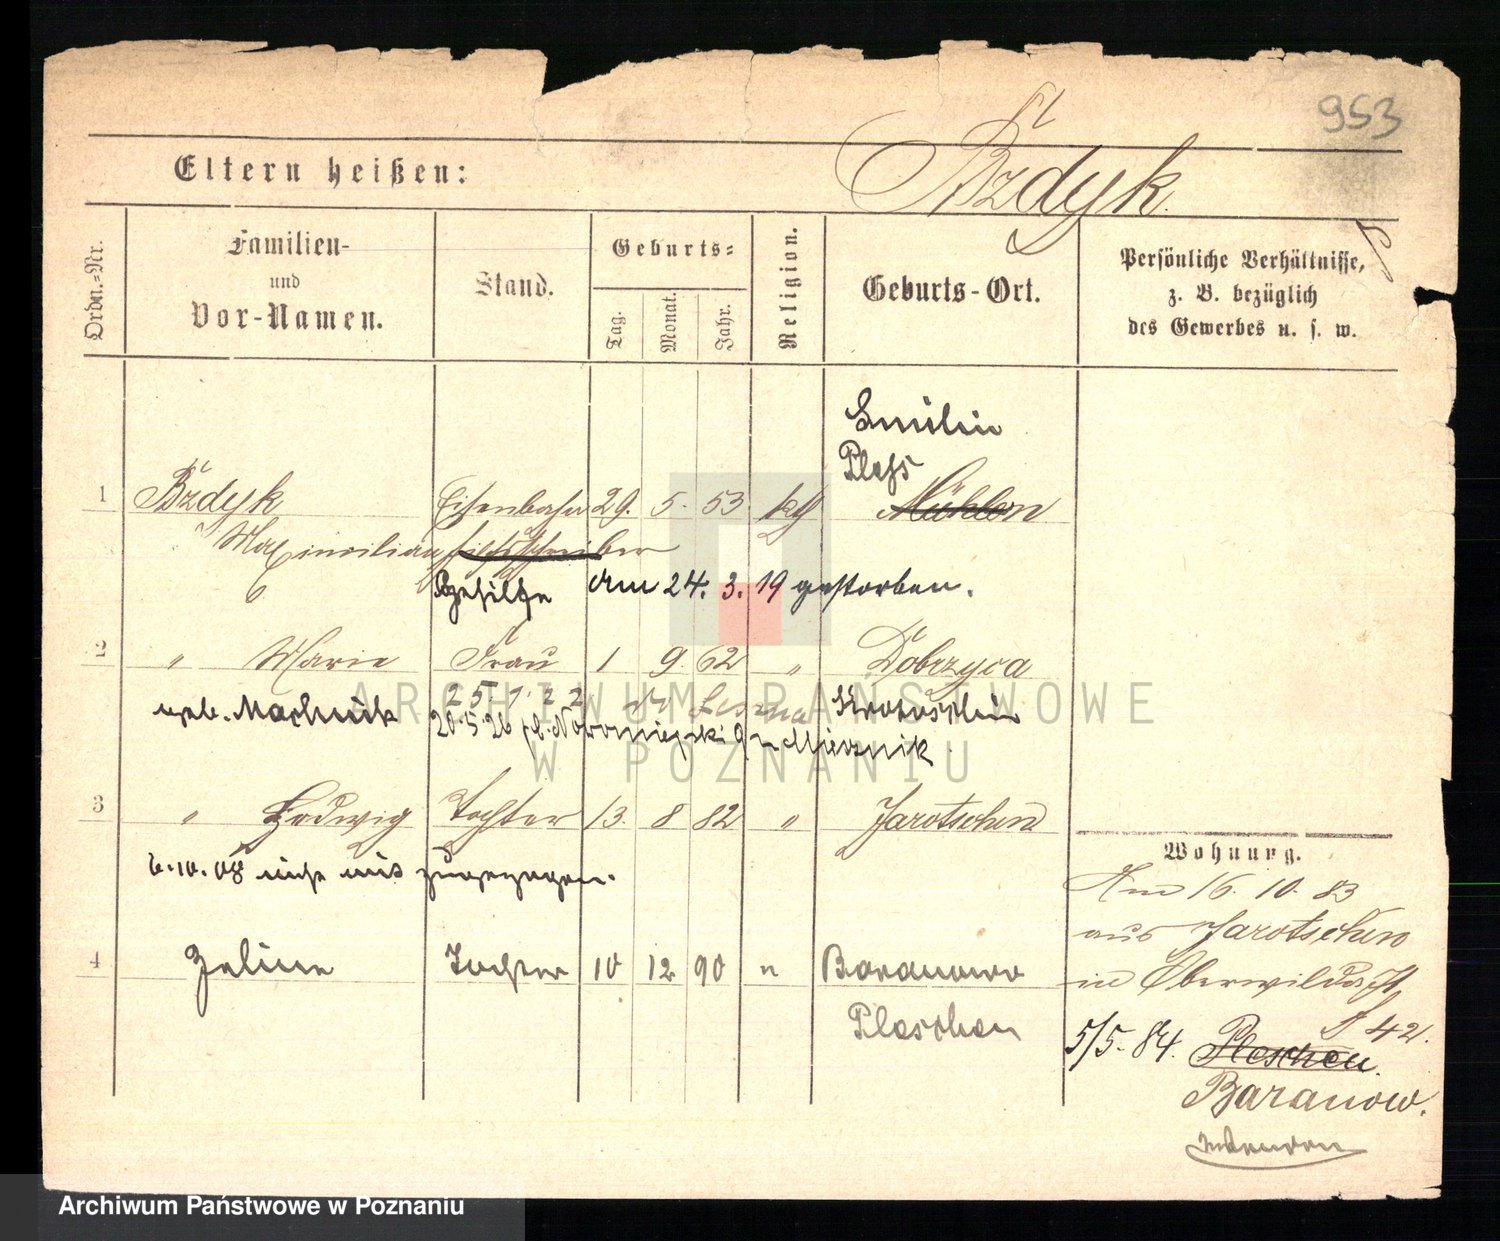 953
Eltern heißen:
Bzdyk
Ordn.-Nr.
Familien-
und
Vor-Namen.
Stand.
Geburts-
Tag.
Monat.
Jahr.
Religion.
Geburts-Ort.
Persönliche Verhältnisse,
z. B. bezüglich
des Gewerbes u. s. w.
Emilien
Pless
1 Bzdyk Eisenbahn 29. 5. 53 kth Mühlen
Maximilian hilfsschreiber
Gehilfe Am 24. 3. 19 gestorben.
2 " Marie Frau 1 9 62 " Dobrzyca
geb. Machnik 25. 1. 22 Krotoschin
20.5.26
3 " Hedwig Tochter 13. 8 82 " Jarotschin
6.10.08 nicht mit zugezogen.
4 Zeline Tochter 10 12 90 " Baranowo
Pleschen
Wohnung.
Am 16. 10. 83
aus Jarotschin
in
42.
5/5. 84. Pleschen
Baranow.
ARCHIWUM PAŃSTWOWE
W POZNANIU
Archiwum Państwowe w Poznaniu